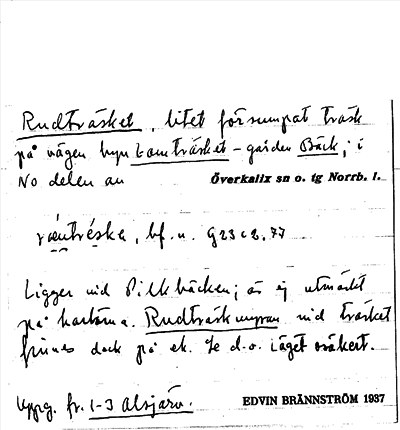 Rudträsket, litet försumpat träsk
på vägen byn Lomträsket - gården Bäck, i
No delen av Överkalix sn o. tg Norrb. l.
bf. n. G23 c 2, 77
Ligger vid Pilkbäcken; är ej utmärkt
på kartorna. Rudträskmyran vid träsket
finnes dock på ek. Se d.o. Läget osäkert.
Uppg. fr. 1-3 Alsjärv. EDVIN BRÄNNSTRÖM 1937